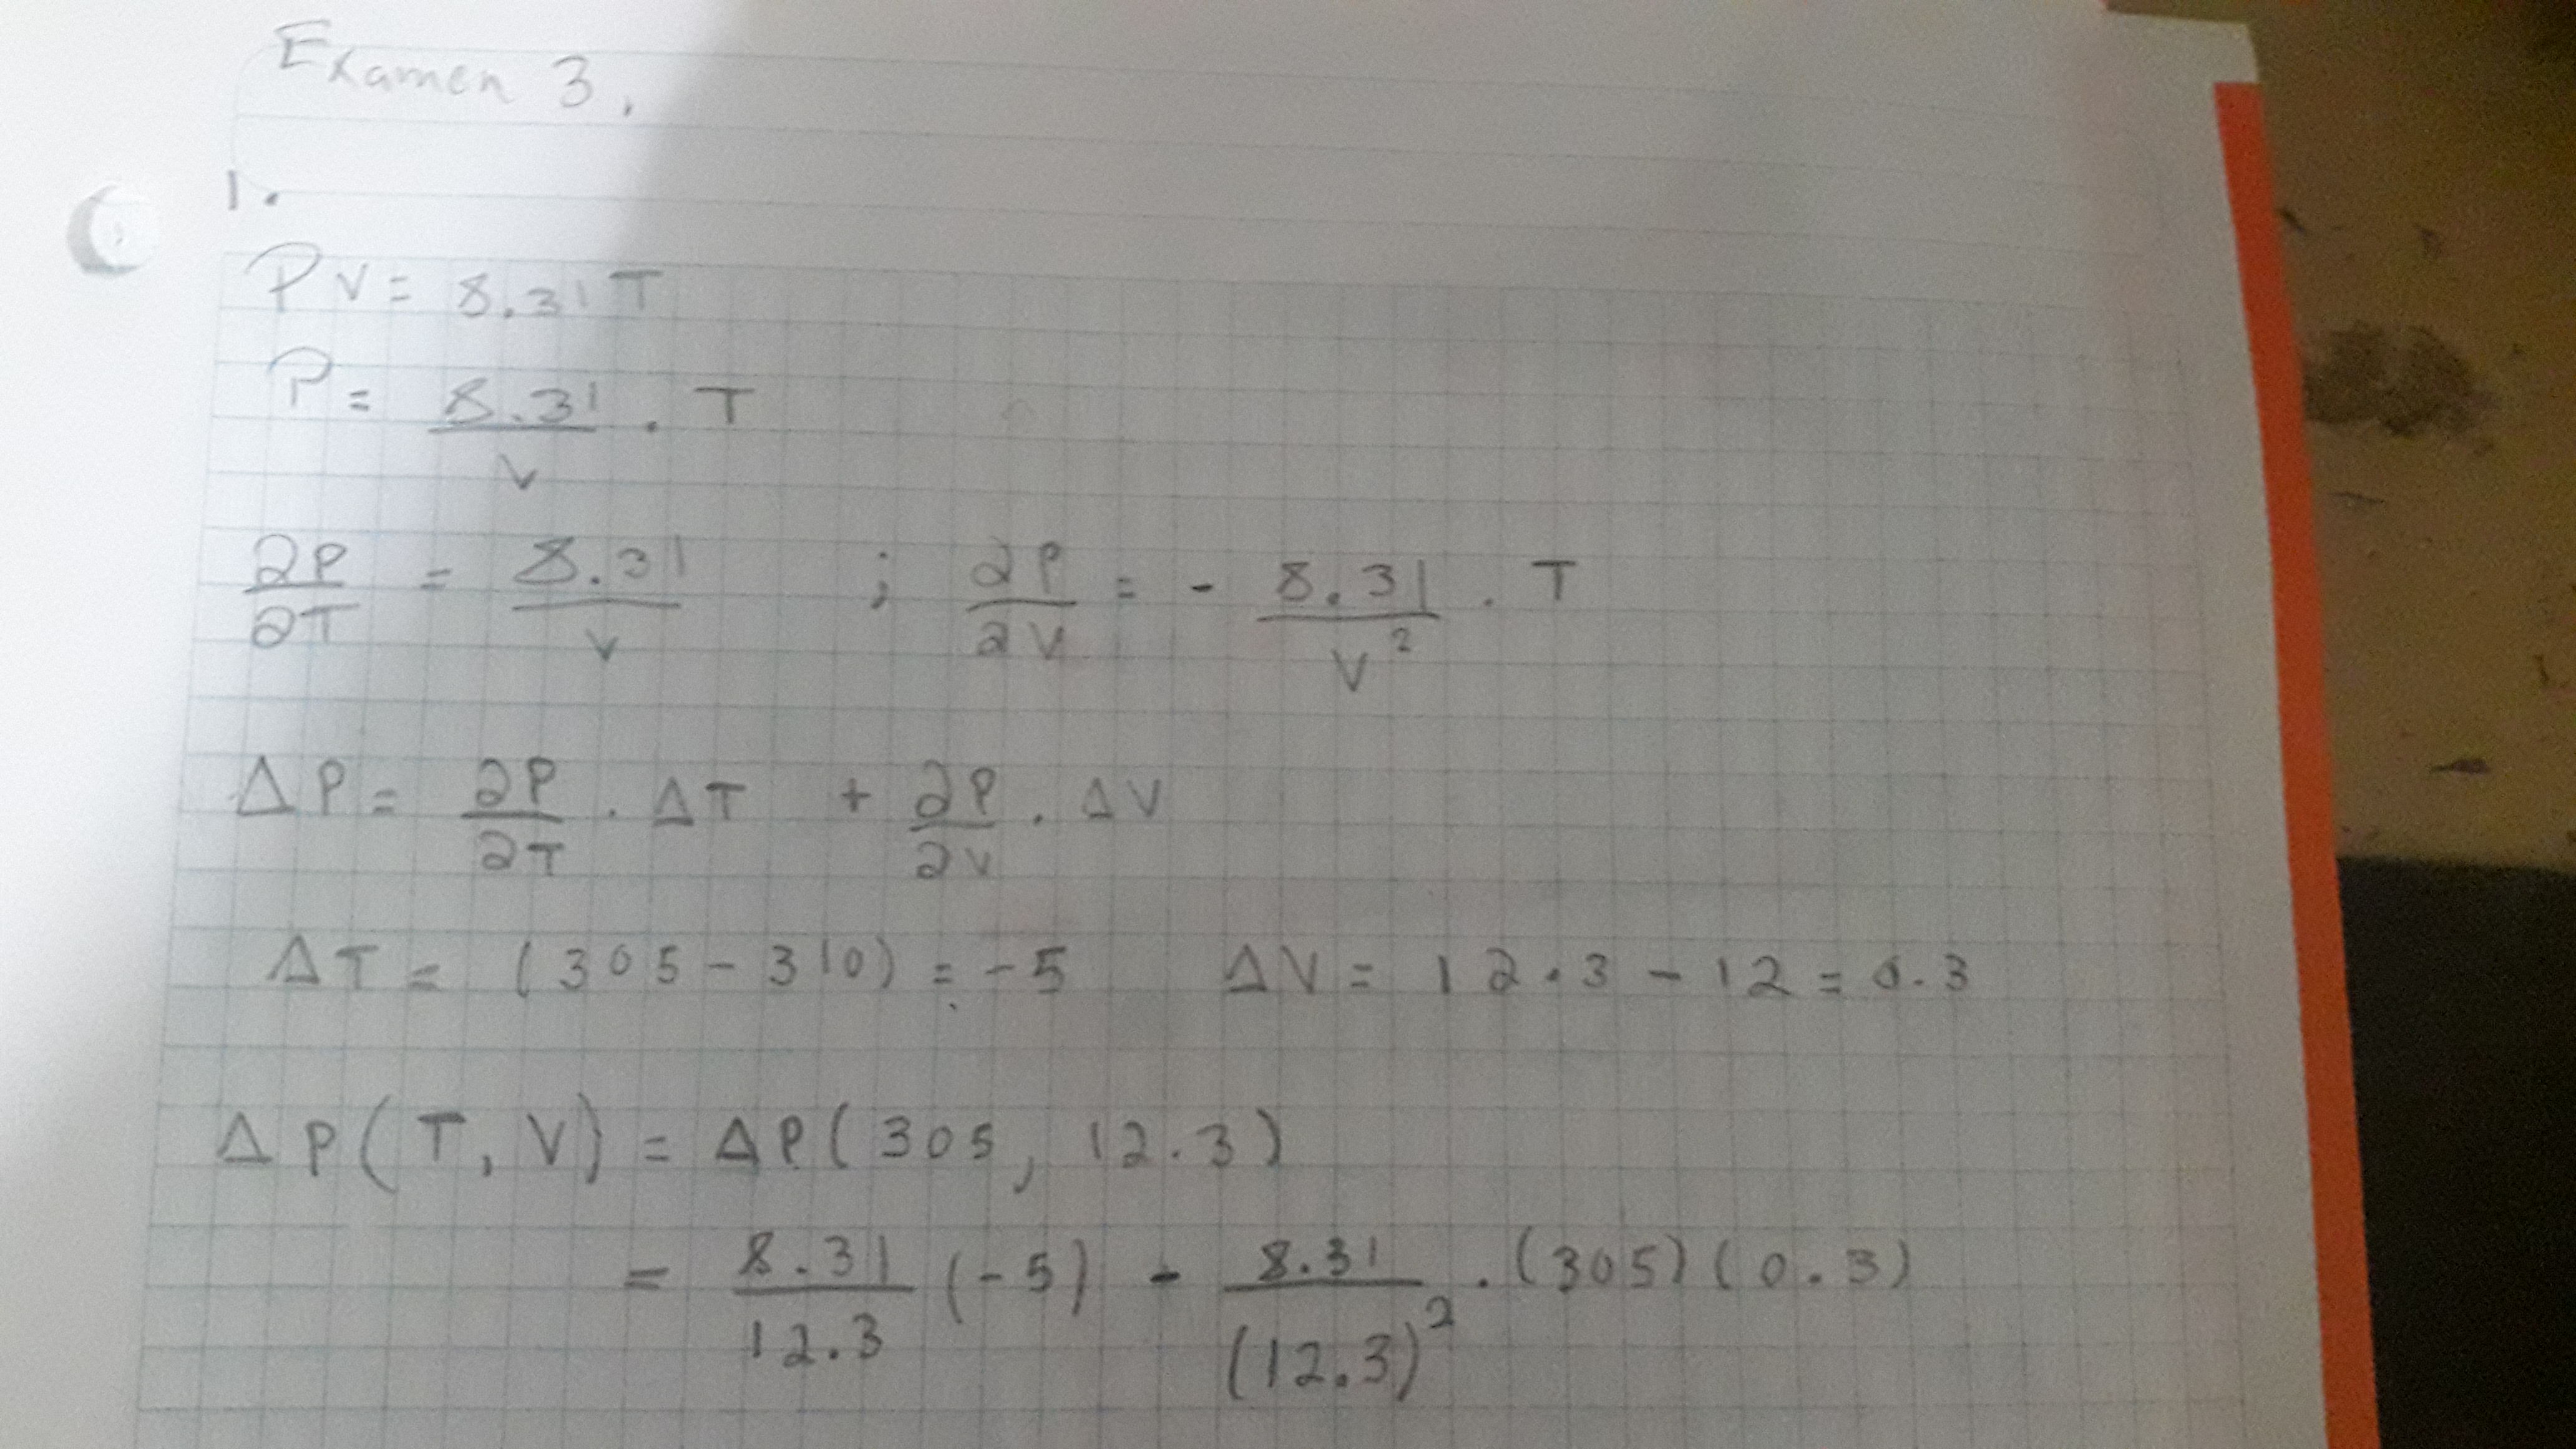 Examen 3,
1.
PV = 8.31T
P = 8.31/V . T
∂P/∂T = 8.31/V ; ∂P/∂V = - 8.31/V² . T
ΔP = ∂P/∂T . ΔT + ∂P/∂V . ΔV
ΔT = (305 - 310) = -5 ΔV = 12.3 - 12 = 0.3
ΔP(T, V) = ΔP(305, 12.3)
= 8.31/12.3 (-5) - 8.31/(12.3)² . (305)(0.3)